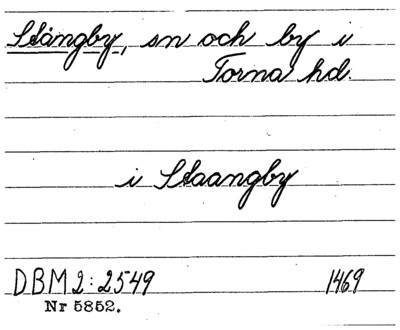 Stångby, sn och by i
Torna hd.
i Staangby
DBM 2:2549 1469
Nr 5852.